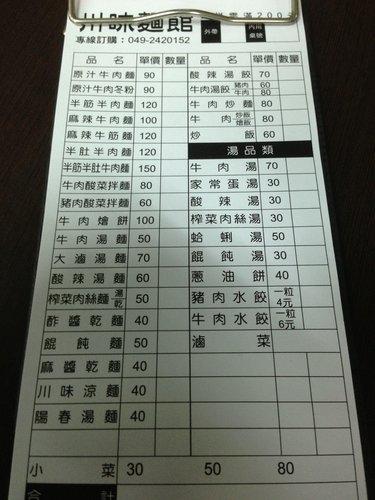 川味麵館
滿200元
外帶
內用
桌號
專線訂購：049-2420152
品名 單價 數量 品名 單價 數量
原汁牛肉麵 90 酸辣湯餃 70
原汁牛肉冬粉 90 牛肉湯餃 豬肉 60 牛肉 80
半筋半肉麵 120 牛肉炒麵 80
麻辣牛肉麵 100 牛肉 炒飯 燴飯 80
麻辣牛筋麵 120 炒飯 60
半肚半肉麵 120 湯品類
半筋半肚牛肉麵 150 牛肉湯 70
牛肉酸菜拌麵 80 家常蛋湯 30
豬肉酸菜拌麵 60 酸辣湯 30
牛肉燴餅 100 榨菜肉絲湯 30
牛肉湯麵 50 蛤蜊湯 50
大滷湯麵 70 餛飩湯 30
酸辣湯麵 60 蔥油餅 40
榨菜肉絲麵 湯 乾 50 豬肉水餃 一粒 4元
酢醬乾麵 40 牛肉水餃 一粒 6元
餛飩麵 50 滷菜
麻醬乾麵 40
川味涼麵 40
陽春湯麵 40
小菜 30 50 80
合計